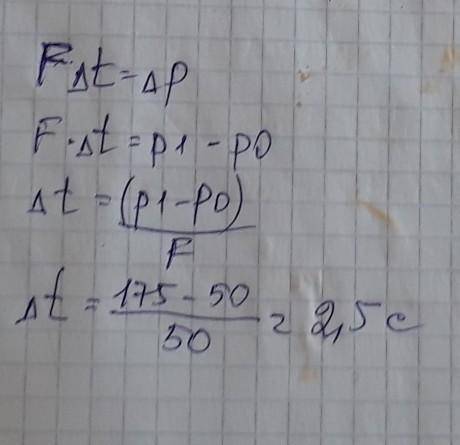 F Δt = Δp
F · Δt = p1 - p0
Δt = (p1-p0) / F
Δt = 175 - 50 / 50 = 2,5 c